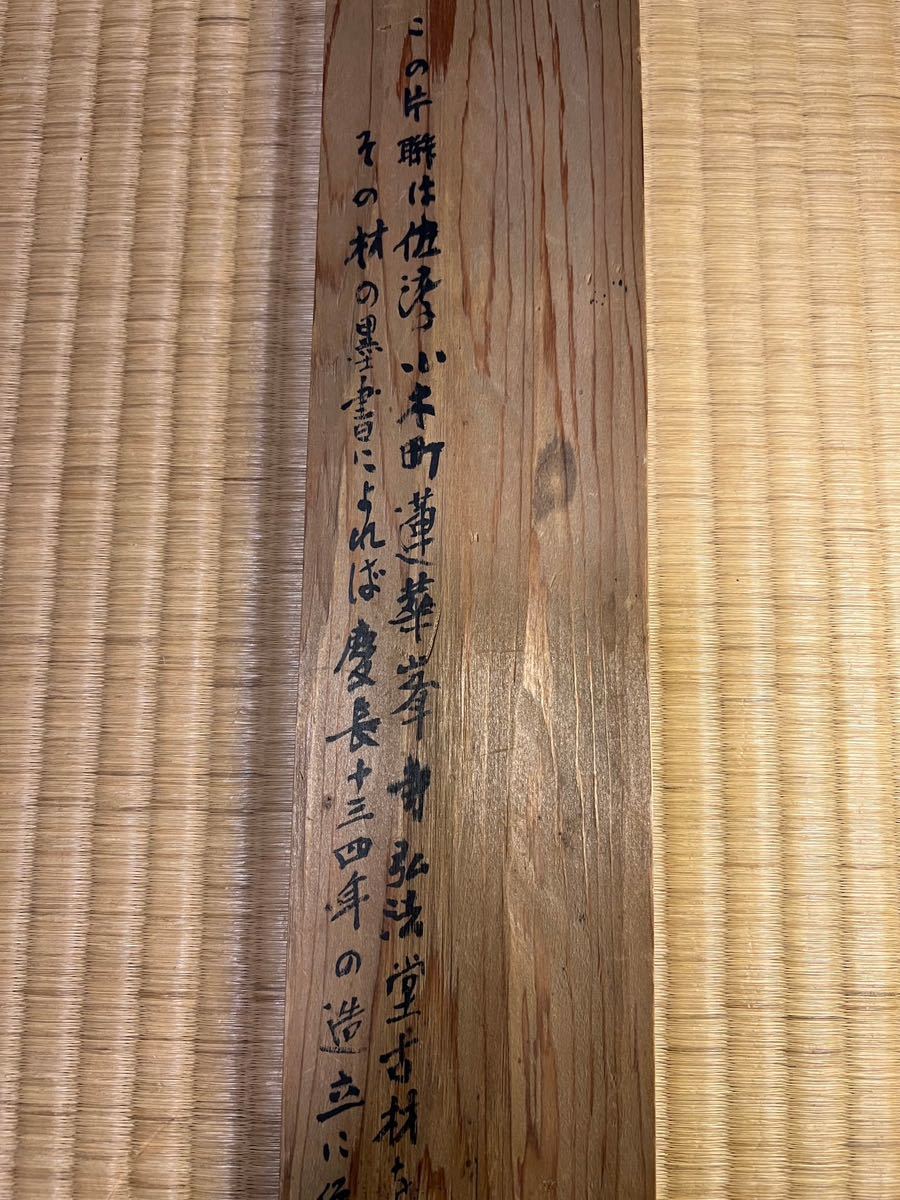 この片聯は佐渡小木町蓮華峯寺弘法堂古材な
その材の墨書によれば慶長十三四年の造立に